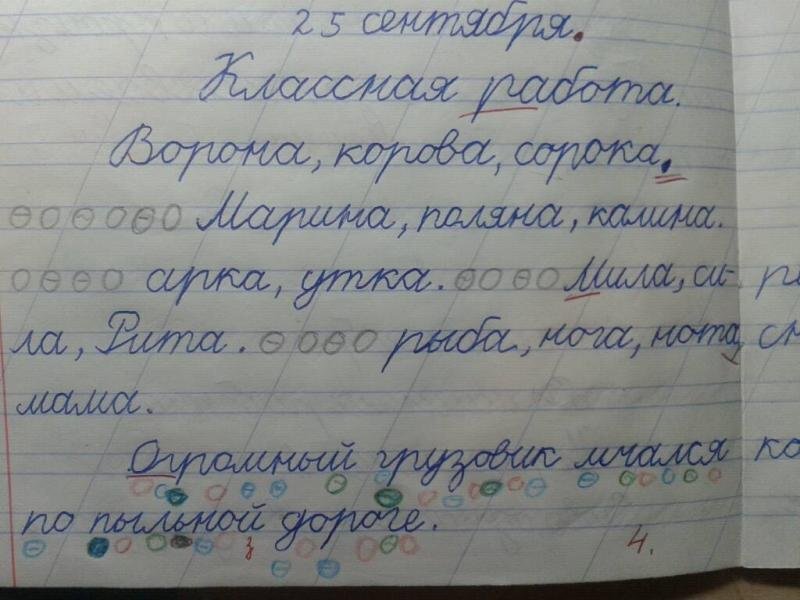 25 сентября.
Классная работа.
Ворона, корова, сорока.
Марина, поляна, калина.
арка, утка. Мила, си-
ла, Рита. рыба, нога, нота,
мама.
Огромный грузовик мчался
по пыльной дороге.
з 4.